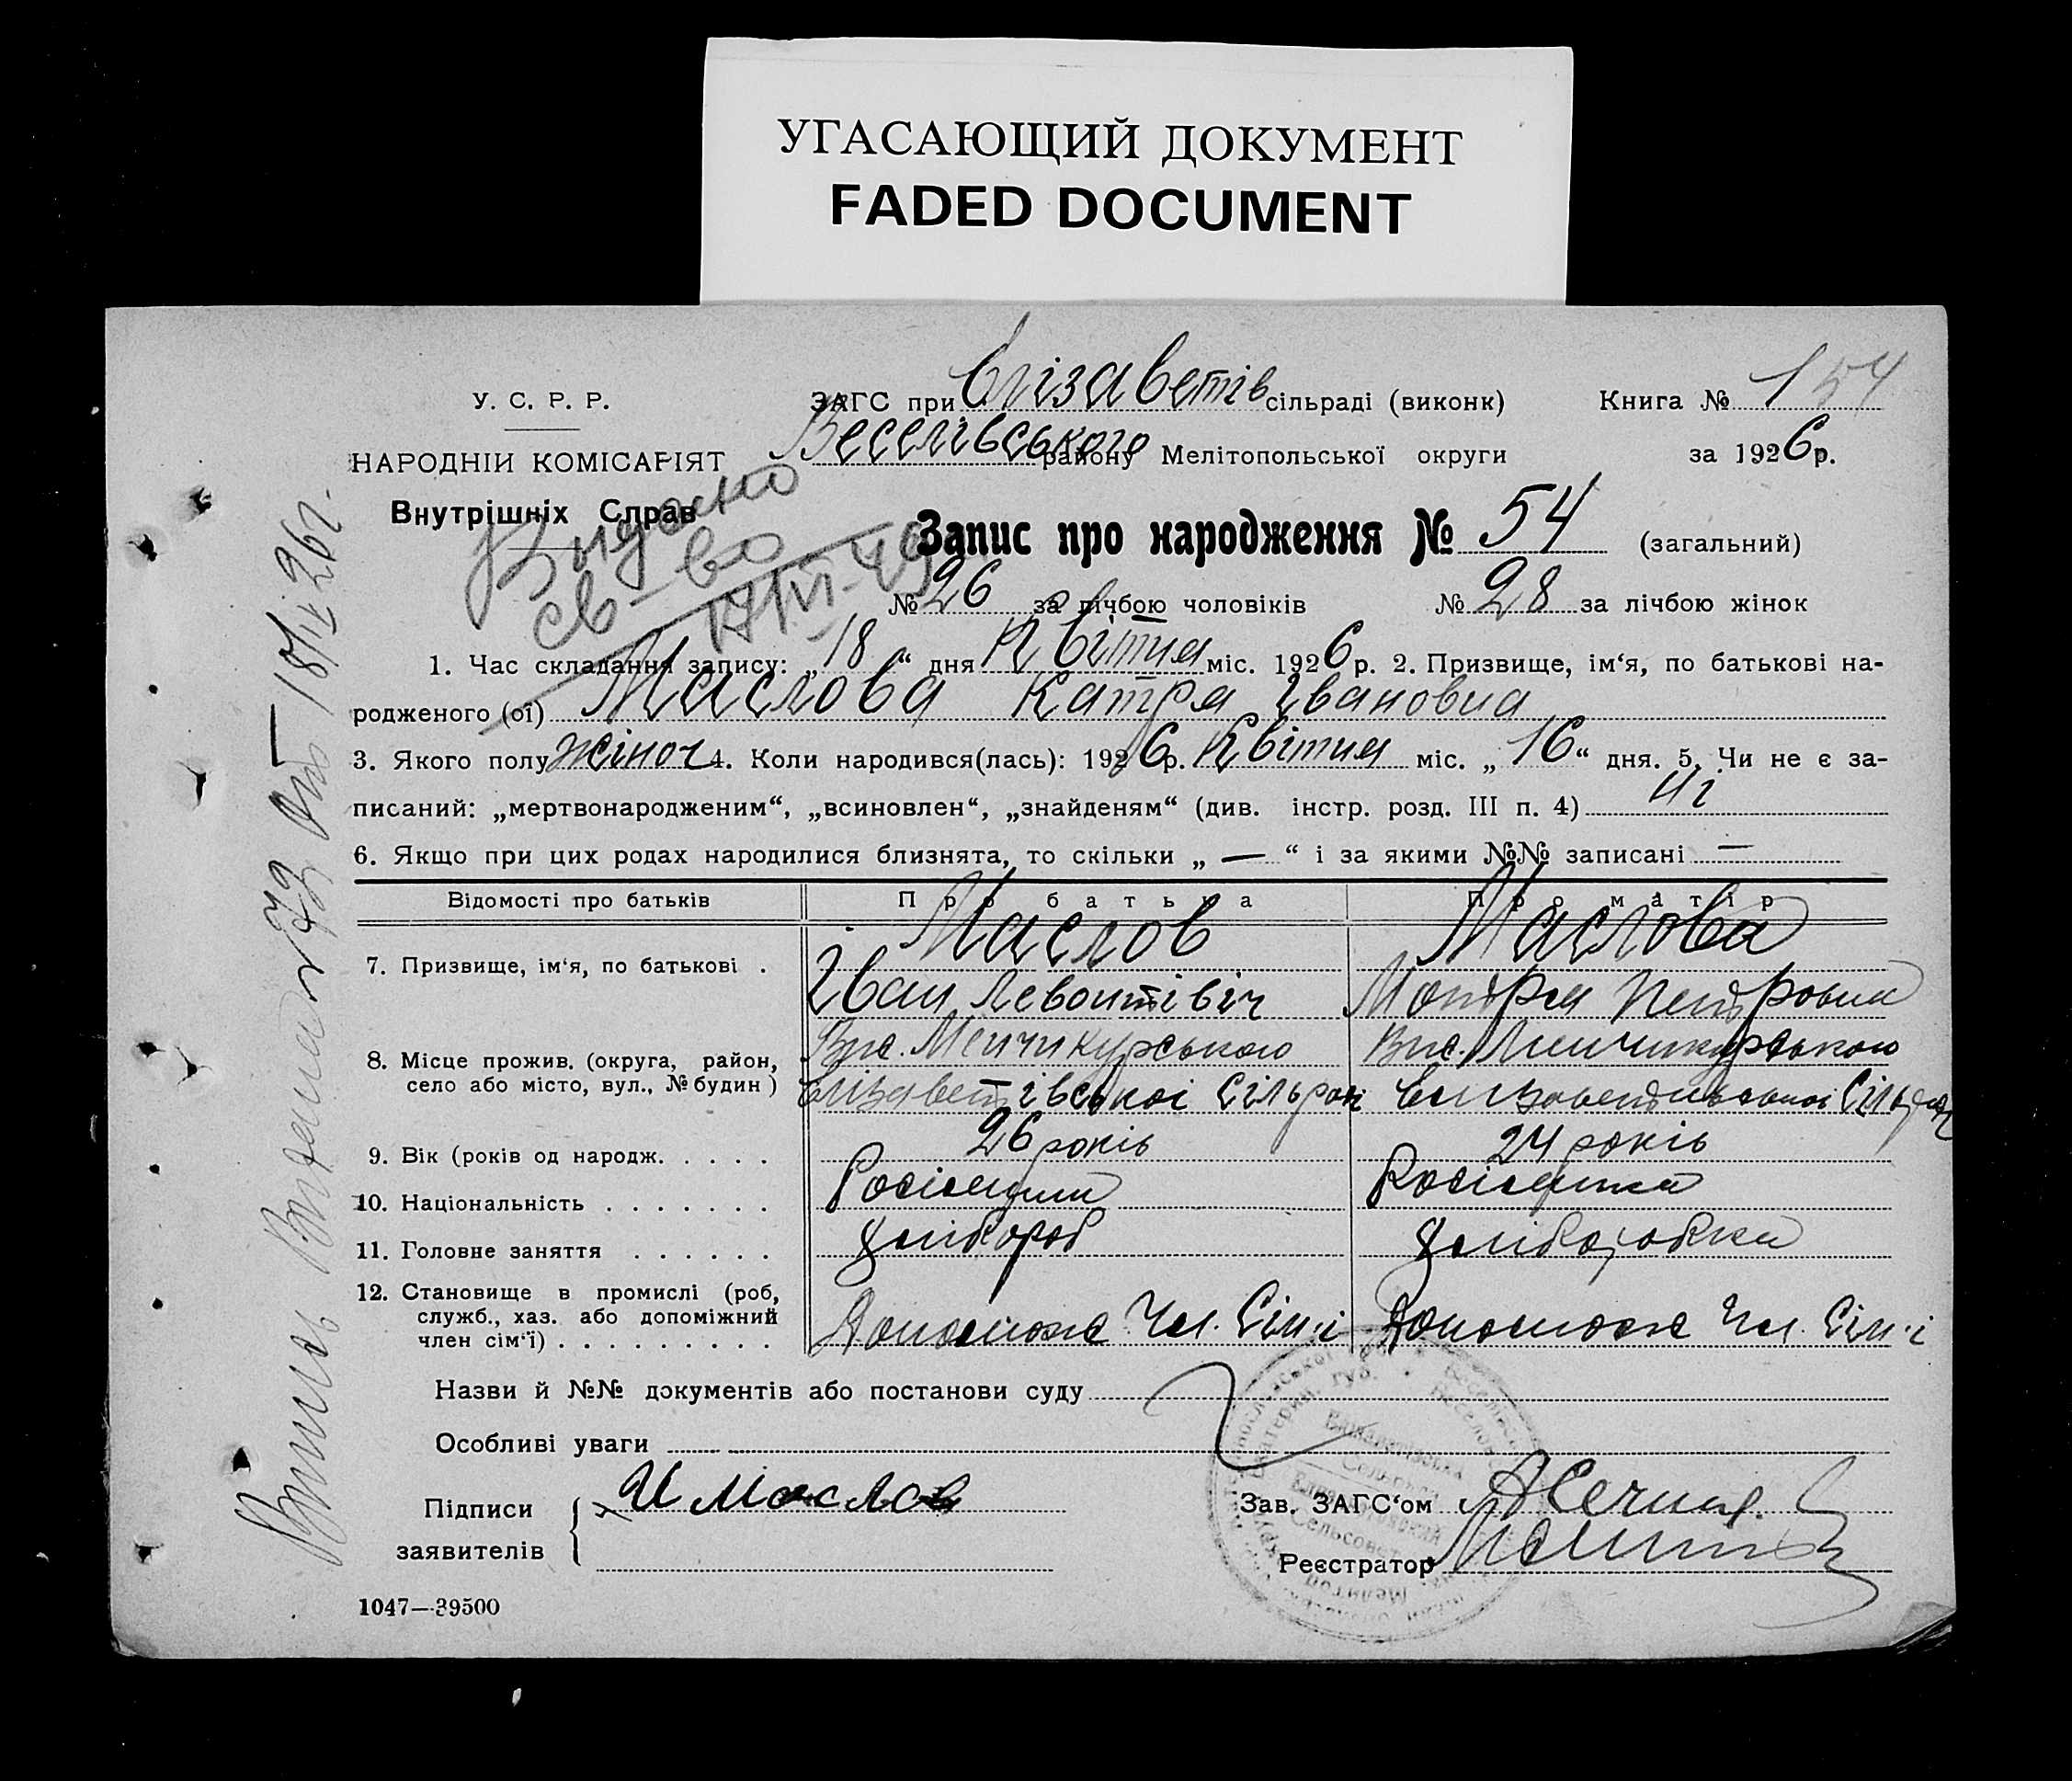 УГАСАЮЩИЙ ДОКУМЕНТ
FADED DOCUMENT
У. С. Р. Р.
НАРОДНІЙ КОМІСАРІЯТ
Внутрішніх Справ
ЗАГС при Єлізаветів сільраді (виконк) Книга № 1 54
Веселівського району Мелітопольської округи за 1926 р.
Видано
св-во
Запис про народження № 54 (загальний)
№ 26 за лічбою чоловіків № 28 за лічбою жінок
1. Час складання запису: „18“ дня Квітня міс. 1926 р. 2. Призвище, ім‘я, по батькові на-
родженого (ої) Маслова Катря Івановна
3. Якого полу жіноч 4. Коли народився(лась): 1926 р. Квітня міс. „16“ дня. 5. Чи не є за-
писаний: „мертвонародженим“, „всиновлен“, „знайденям“ (див. інстр. розд. III п. 4) Ні
6. Якщо при цих родах народилися близнята, то скільки „ — “ і за якими №№ записані —
Відомості про батьків Про батька Про матір
7. Призвище, ім‘я, по батькові . Маслов Маслова
Іван Левонтівіч Мотря Петровна
8. Місце прожив. (округа, район, село або місто, вул., № будин ) Менчикурського
Єлізаветівської Сільради
9. Вік (років од народж. . . . . 26 років 24 років
10. Національність . . . . . . . Росіянин Росіянка
11. Головне заняття . . . . . . Хлібороб Хліборобка
12. Становище в промислі (роб, служб., хаз. або допоміжний член сім‘ї) . . . . . . . . . Допомож Чл. Сім‘ї Допомож Чл. Сім‘ї
Назви й №№ документів або постанови суду
Особливі уваги
Підписи заявителів И Маслов
Зав. ЗАГС‘ом
Реєстратор
1047—39500